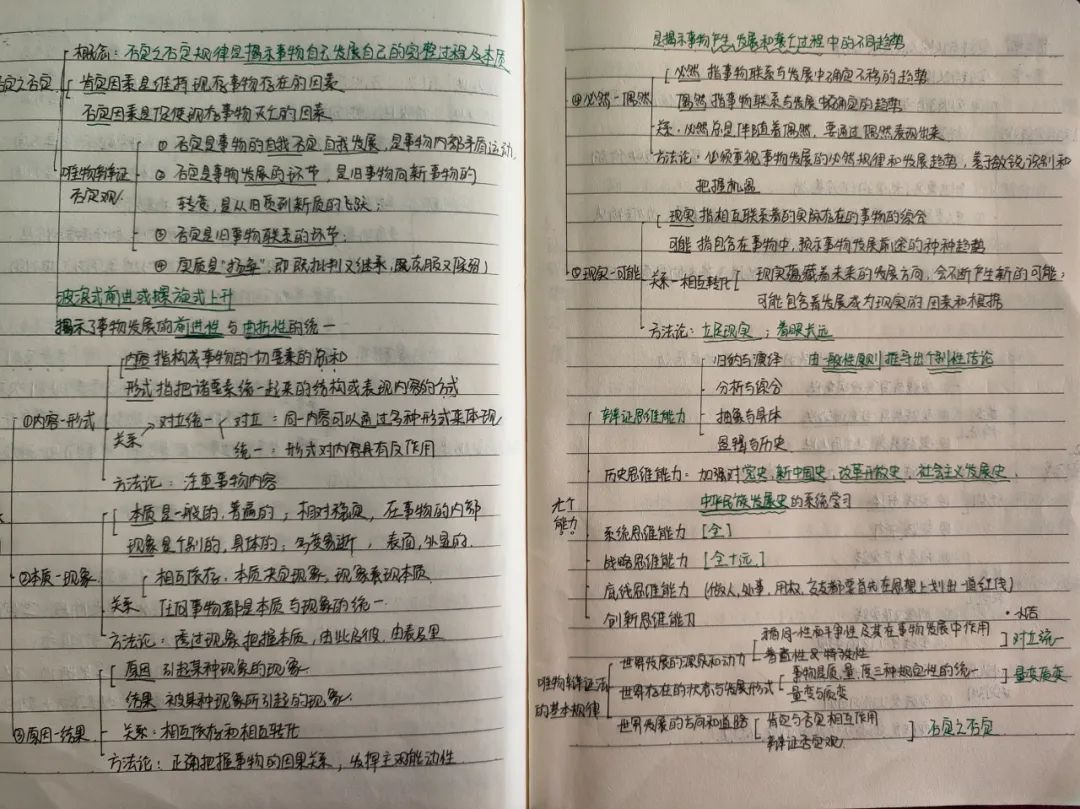 概念：否定之否定规律是揭示事物自己发展自己的完整过程及本质
否定之否定
肯定因素是维持现存事物存在的因素
否定因素是促使现存事物灭亡的因素
① 否定是事物的自我否定 自我发展，是事物内部矛盾运动
唯物辩证
否定观
② 否定是事物发展的环节，是旧事物向新事物的
转变，是从旧质到新质的飞跃；
③ 否定是旧事物联系的环节；
④ 实质是"扬弃"即既批判又继承，既克服又保留）
波浪式前进或螺旋式上升
揭示了事物发展的前进性与曲折性的统一
内容 指构成事物的一切要素的总和
形式 指把诸要素统一起来的结构或表现内容的方式
①内容-形式
关系 对立统一 对立：同一内容可以通过多种形式来体现
统一：形式对内容具有反作用
方法论：注重事物内容
本质是一般的，普遍的；相对稳定，在事物的内部
现象是个别的，具体的；多变易逝，表面，外显的.
②本质-现象
相互依存，本质决定现象，现象表现本质
关系 任何事物都是本质与现象的统一
方法论：透过现象把握本质，由此及彼，由表及里
原因 引起某种现象的现象
结果 被某种现象所引起的现象
③原因-结果
关系：相互依存和相互转化
方法论：正确把握事物的因果关系，发挥主观能动性
是揭示事物产生、发展和衰亡过程中的不同趋势
必然 指事物联系与发展中确定不移的趋势
④必然-偶然
偶然 指事物联系与发展中不确定的趋势
关系：必然总是伴随着偶然，要通过偶然表现出来
方法论：必须重视事物发展的必然规律和发展趋势，善于敏锐识别和
把握机遇
现实 指相互联系着的实际存在的事物的综合
可能 指包含在事物中，预示事物发展前途的种种趋势
⑤现实-可能
关系-相互转化 现实蕴藏着未来的发展方向，会不断产生新的可能；
可能包含着发展成为现实的因素和根据
方法论：立足现实；着眼长远
归纳与演绎 由一般性原则推导出个别性结论
分析与综合
辩证思维能力
抽象与具体
逻辑与历史
历史思维能力：加强对党史，新中国史，改革开放史，社会主义发展史，
中华民族发展史的系统学习
能力
系统思维能力 [全]
战略思维能力 [全+远]
底线思维能力 (做人，处事，用权，交友都要首先在思想上划出一道红线)
创新思维能力
世界发展的源泉和动力
矛盾同一性和斗争性及其在事物发展中作用
普遍性及特殊性
对立统一
唯物辩证法
的基本规律
世界存在的状态与发展形式
事物是质、量、度三种规定性的统一
量变与质变
量变质变
世界发展的方向和道路
肯定与否定相互作用
辩证否定观
否定之否定